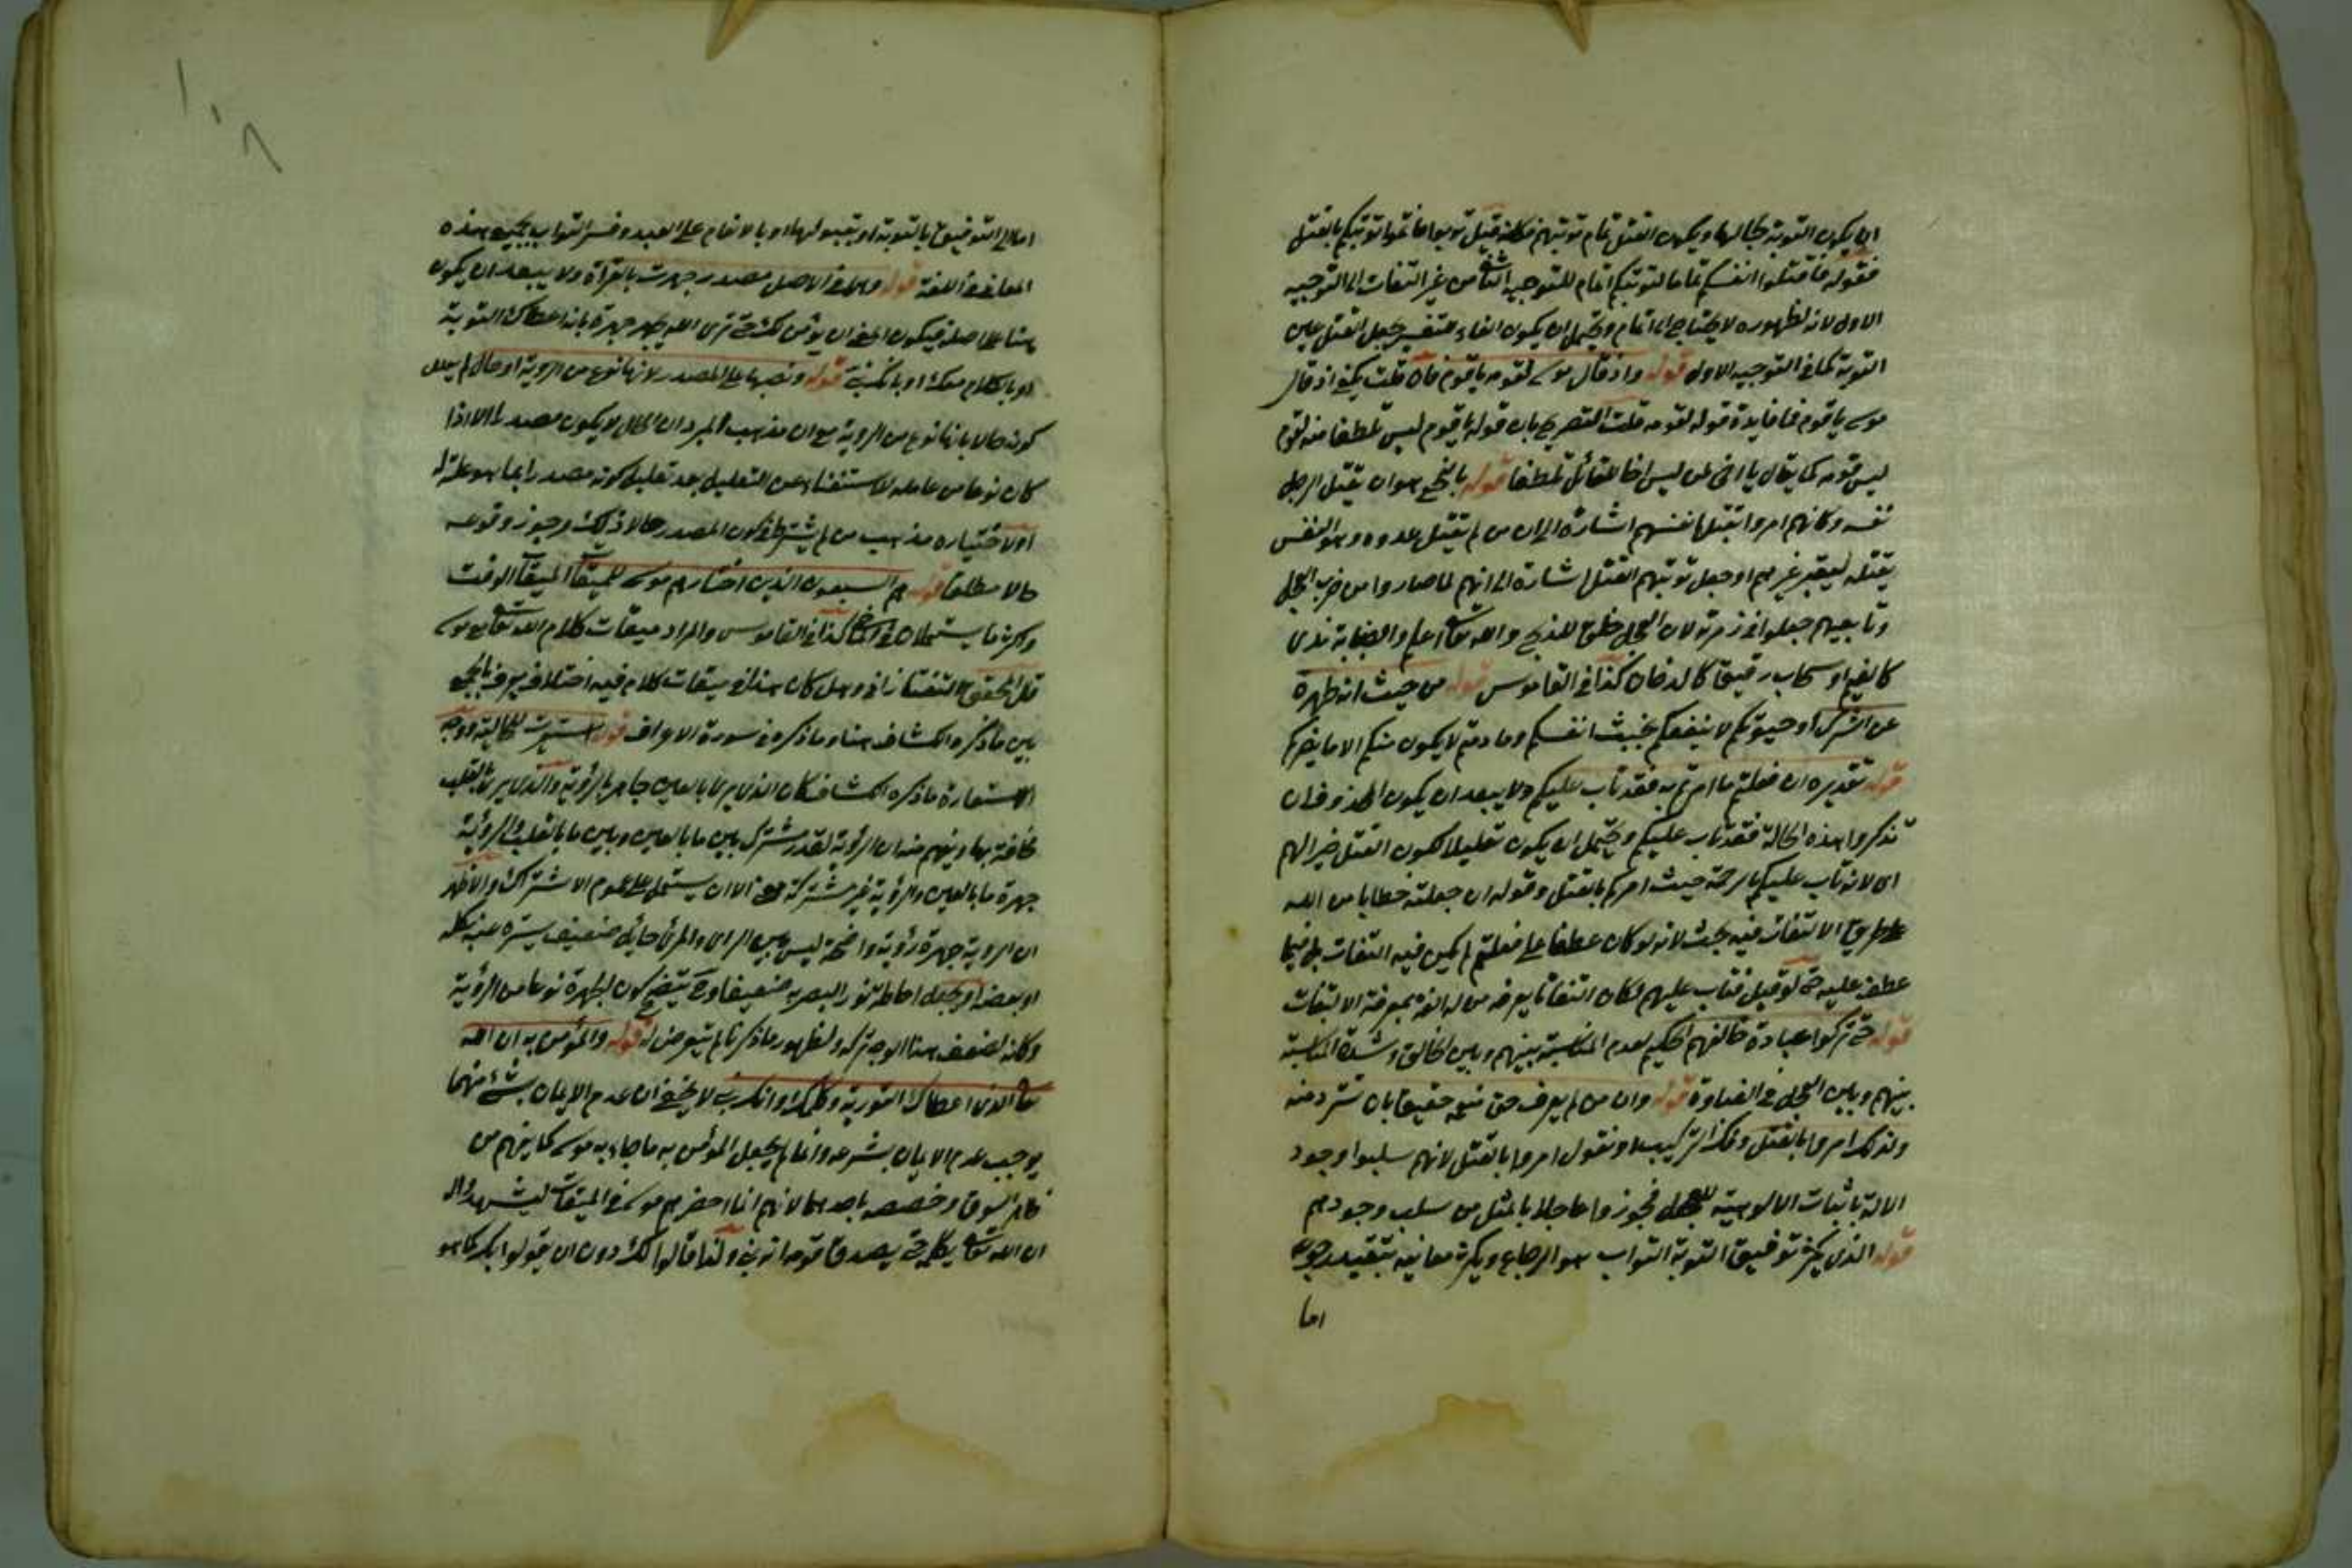 ان يكون التوبة بحالها ويكون القتل تمام توبتهم فكانه قيل توبوا فاتموا توبتكم بالقتل
فقوله فاقتلوا انفسكم تماما لتوبتكم اتمام للتوجيه الثانى من غير التفات الى التوجيه
الاول لانه لظهوره لا يحتاج الى اتمام ويحتمل ان يكون الفاء للتفسير بجعل القتل عين
التوبة كما فى التوجيه الاول قوله واذ قال موسى لقومه يا قوم فان قلت يكفى اذ قال
موسى يا قوم فما فايدة قوله لقومه قلت التصريح بان قوله يا قوم ليس تلطفا منه لقوم
ليس قومه كما يقال يا اخى لمن ليس اخا للقائل تلطفا قوله بالبخع هو ان يقتل الرجل
نفسه وكانهم امروا بقتل انفسهم اشارة الى ان من لم يقتل عدوه وهو النفس
يقتله ليعتبر غيرهم او جعل توبتهم القتل اشارة الى انهم لما صاروا من حزب العجل
وتابعيهم جعلوا فى زمرته لان العجل خلق للذبح والله تعالى اعلم والضبابة ندى
كالغيم او سحاب رقيق كالدخان كذا فى القاموس قوله من حيث انه طهرة
عن الشرك او حيوتكم لا ينفعكم بخبث انفسكم وما دمتم لا يكون منكم الا ما يضركم
قوله تقديره ان فعلتم ما امرتم به فقد تاب عليكم ولا يبعد ان يكون المحذوف ان
تذكروا هذه الحالة فقد تاب عليكم ويحتمل ان يكون تعليلا لكون القتل خيرا لهم
اى لانه تاب عليكم بالرحمة حيث امركم بالقتل وقوله ان جعلته خطابا من الله
على طريق الالتفات فيه بحث لانه لو كان عطفا على فعلتم لم يكن فيه التفات بل فيما
عطف عليه حتى لو قيل فتاب عليهم لكان التفاتا يعرفه من له الفة بمعرفة الالتفات
قوله حتى تركوا عبادة خالقهم الحكيم لعدم المناسبة بينهم وبين الخالق وشدة المناسبة
بينهم وبين العجل فى الغباوة قوله وان من لم يعرف حق منعمه حقيق بان تسترد منه
ولذلك امروا بالقتل وفك التركيب ونقول امروا بالقتل لانهم سلبوا وجود
الاله باثبات الالوهية للعجل فجوزوا عاجلا بالمثل من سلب وجودهم
قوله الذى يكثر توفيق التوبة التواب هو الرجاع ويكثر معانيه بتقييد رجوعه
اما
اما الى التوفيق بالتوبة او بقبولها او بالانعام على العبد وفسر التواب بجميع هذه
المعانى فى اللغة قوله وهى فى الاصل مصدر جهرت بالقراة ولا يبعد ان يكون
هنا على اصله فيكون المعنى لن نؤمن لك حتى نرى الله يجهر جهرة بانه اعطاك التوبة
او بالكلام معك او بانك نبى قوله ونصبها على المصدر لانها نوع من الروية او حال لم يعلل
كونه حالا بانها نوع من الروية مع ان مذهب المبرد ان الحال لا يكون مصدرا الا اذا
كان نوعا من عامله للاستغناء عن التعليل بعد تعليل كونه مصدرا بما هو علة له
او لاختياره مذهب من لم يشترط فى كون المصدر حالا ذلك وجوز وقوعه
حالا مطلقا قوله هم السبعون الذين اختارهم موسى للميقات الميقات الوقت
واكثر ما يستعملان فى الماضى كذا فى القاموس والمراد ميقات كلام الله تعالى مع موسى
قال المحقق التفتازانى وهل كان هذا فى ميقات كلام فيه اختلاف يعرف بالجمع
بين ما ذكره الكشاف هنا وما ذكره فى سورة الاعراف قوله استعيرت للحالية ووجه
الاستعارة ما ذكره الكشاف كان الذى يرى بالعين جاهر بالرؤية والذى يرى بالقلب
مخافت بها ويفهم منه ان الرؤية لقدر مشترك بين ما بالعين وبين ما بالقلب والرؤية
جهرة ما بالعين والرؤية غير مشتركة بمعنى الا ان يستعمل على عموم الاشتراك والاظهر
ان الروية جهرة رؤية واضحة ليس بين الراى والمرئى حايل ضعيف يستره عنه كله
او بعضه او يجعل احاطة نور البصر به ضعيفا وح يتضح كون الجهرة نوعا من الرؤية
وكانه لضعف هذا الوجه تركه ولظهور ما ذكرنا لم يتعرض له قوله والمؤمن به ان الله
تعالى الذى اعطاك التورية وكلمك او انك نبى لا يخفى ان عدم الايمان بشئ منهما
يوجب عدم الايمان بشرعه وانما لم يجعل المؤمن به ما جاء به موسى كما يفهم من
ظاهر السوق وخصصه باحدهما لانهم انما احضرهم موسى فى الميقات ليشهدوا
ان الله تعالى يكلمه حتى يصدق قومه انه نبى ولذا قالوا لك دون ان يقولوا بك كما هو